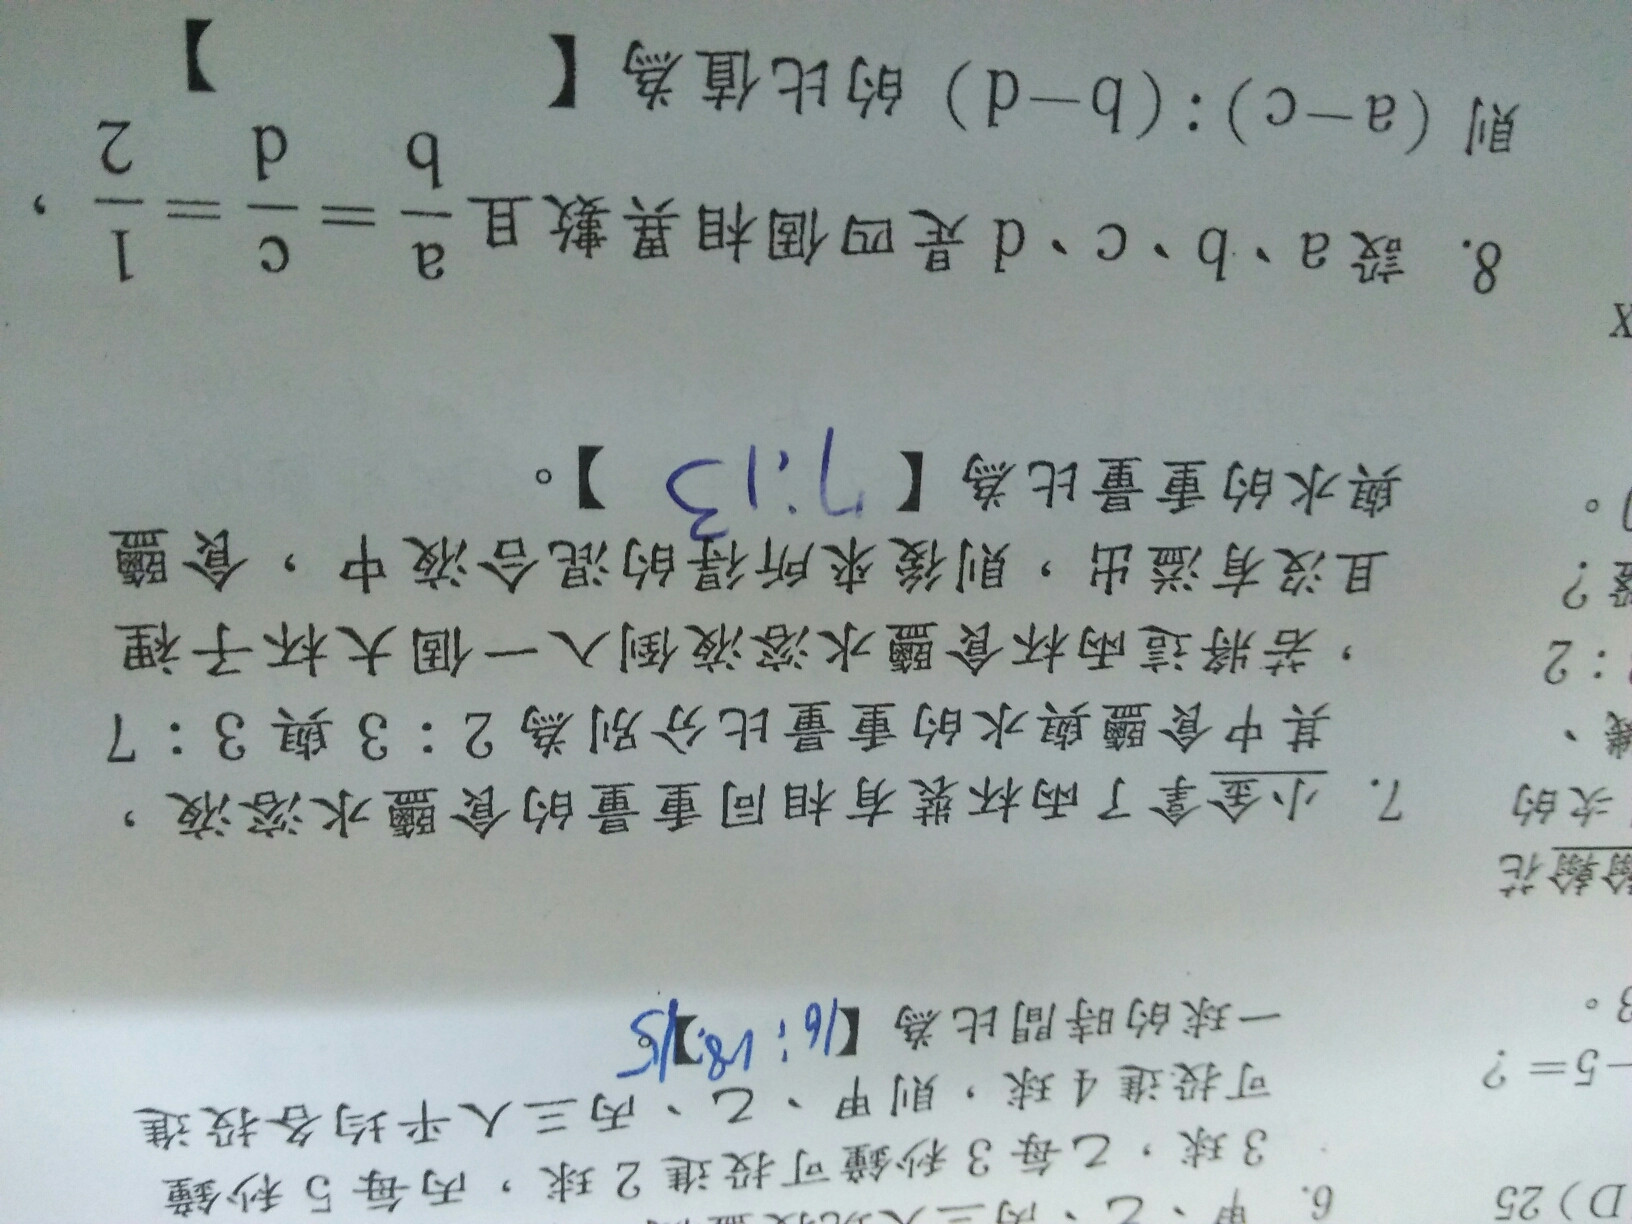 D) 25
-5=?
3。
花
次的
、
:2
?
。
X
6. 甲、乙、丙三人
3球,乙每3秒鐘可投進2球,丙每5秒鐘
可投進4球,則甲、乙、丙三人平均各投進
一球的時間比為【16:18:15】。
7. 小金拿了兩杯裝有相同重量的食鹽水溶液,
其中食鹽與水的重量比分別為2:3與3:7
,若將這兩杯食鹽水溶液倒入一個大杯子裡
且沒有溢出,則後來所得的混合液中,食鹽
與水的重量比為【7:13】。
8. 設a、b、c、d是四個相異數且a/b=c/d=1/2,
則(a-c):(b-d)的比值為【 】